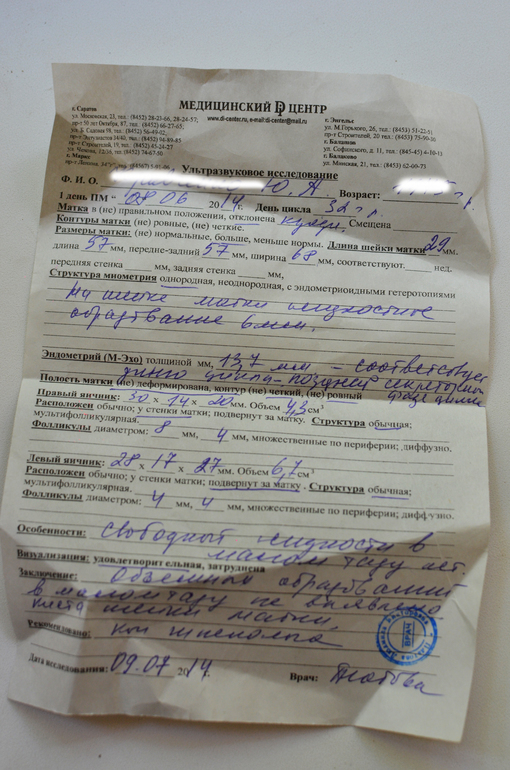 МЕДИЦИНСКИЙ ЦЕНТР
www.di-center.ru, e-mail:di-center@mail.ru
г. Саратов
ул. Московская, 23, тел.: (8452) 28-23-66, 28-24-57;
пр-т 50 лет Октября, 87, тел.: (8452) 66-27-65;
г. Маркс
г. Энгельс
ул. М.Горького, 26, тел.: (8453) 51-22-51
пр-т Строителей, 20 тел.: (8453) 75-90-30
г. Балашов
г. Балаково
ул. Минская, 21, тел.: (8453) 62-00-73
Ультразвуковое исследование
Ф. И. О. Ю. А. Возраст: г.р.
1 день ПМ 08 06 2014г. День цикла 32
Матка в (не) правильном положении, отклонена кзади, Смещена
Контуры матки (не) ровные, (не) четкие.
Размеры матки: (не) нормальные, больше, меньше нормы. Длина шейки матки 29 мм.
длина 57 мм, передне-задний 57 мм, ширина 68 мм, соответствуют нед.
передняя стенка мм, задняя стенка мм,
Структура миометрия однородная, неоднородная, с эндометриоидными гетеротопиями
На шейке матки жидкостное
образование 6мм.
Эндометрий (М-Эхо) толщиной мм, 13,7 мм - соответствует
дню цикла - поздней секреторной
Полость матки (не) деформирована, контур (не) четкий, (не) ровный фазе цикла
Правый яичник: 30 х 14 х 20 мм. Объем 4,3 см³
Расположен обычно; у стенки матки; подвернут за матку. Структура обычная;
мультифолликулярная.
Фолликулы диаметром: 8 мм, 4 мм, множественные по периферии; диффузно.
Левый яичник: 28 х 17 х 27 мм. Объем 6,7 см³
Расположен обычно; у стенки матки; подвернут за матку. Структура обычная;
мультифолликулярная.
Фолликулы диаметром: 4 мм, 4 мм, множественные по периферии; диффузно.
Особенности: Свободной жидкости в
малом тазу нет
Визуализация: удовлетворительная, затруднена
Заключение: Объемных образований
в малом тазу не выявлено
киста шейки матки.
Рекомендовано: конс гинеколога
ВРАЧ
Дата исследования: 09.07 2014 Врач: